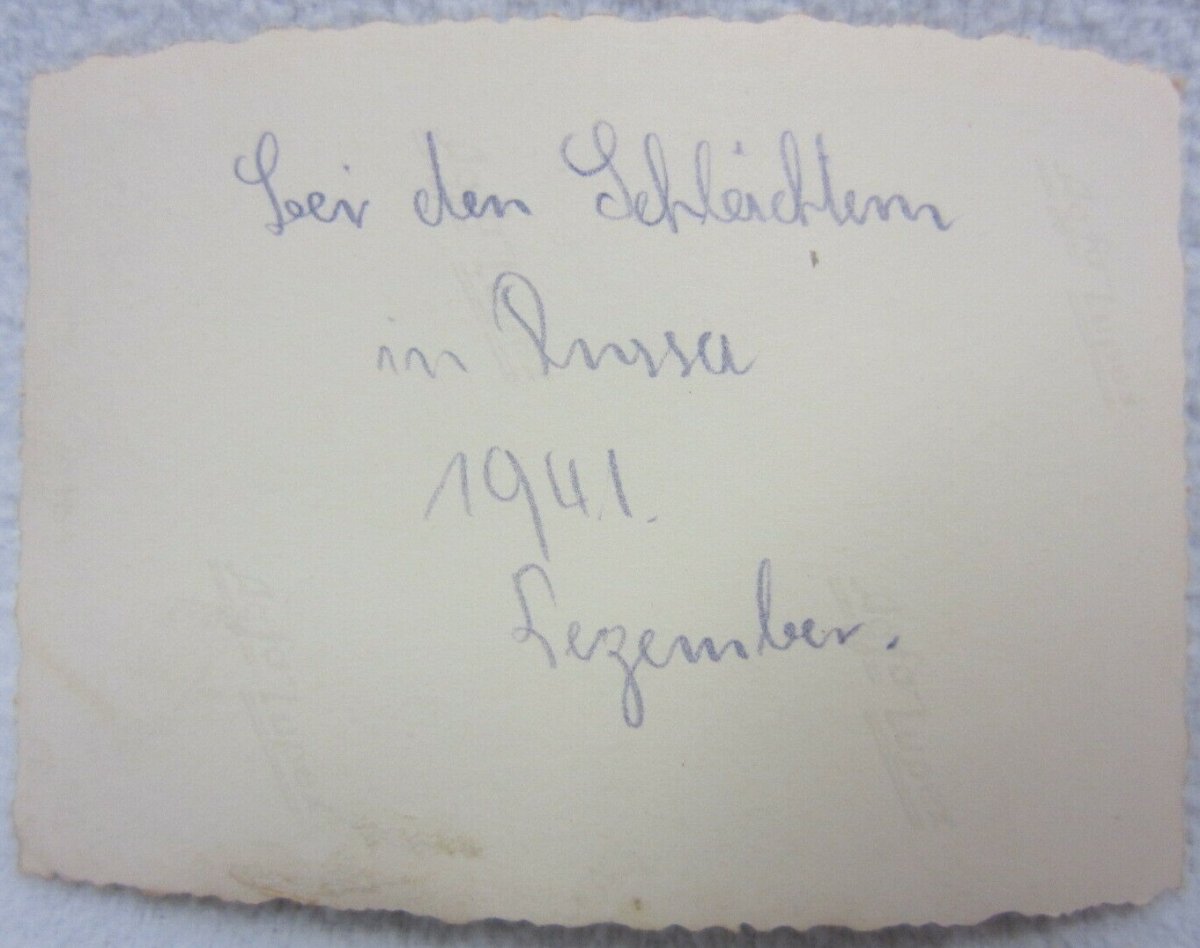 Bei den Schlächtern
in Russa
1941.
Dezember.